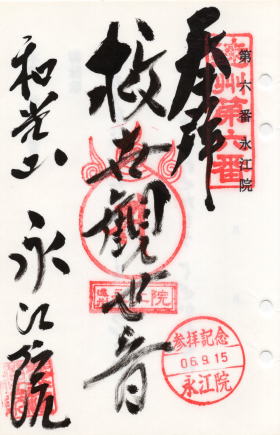 第六番永江院
奉拝
遠州第六番
救世観世音
和光山 永江院
遠州永江院
参拝記念
06.9.15
永江院